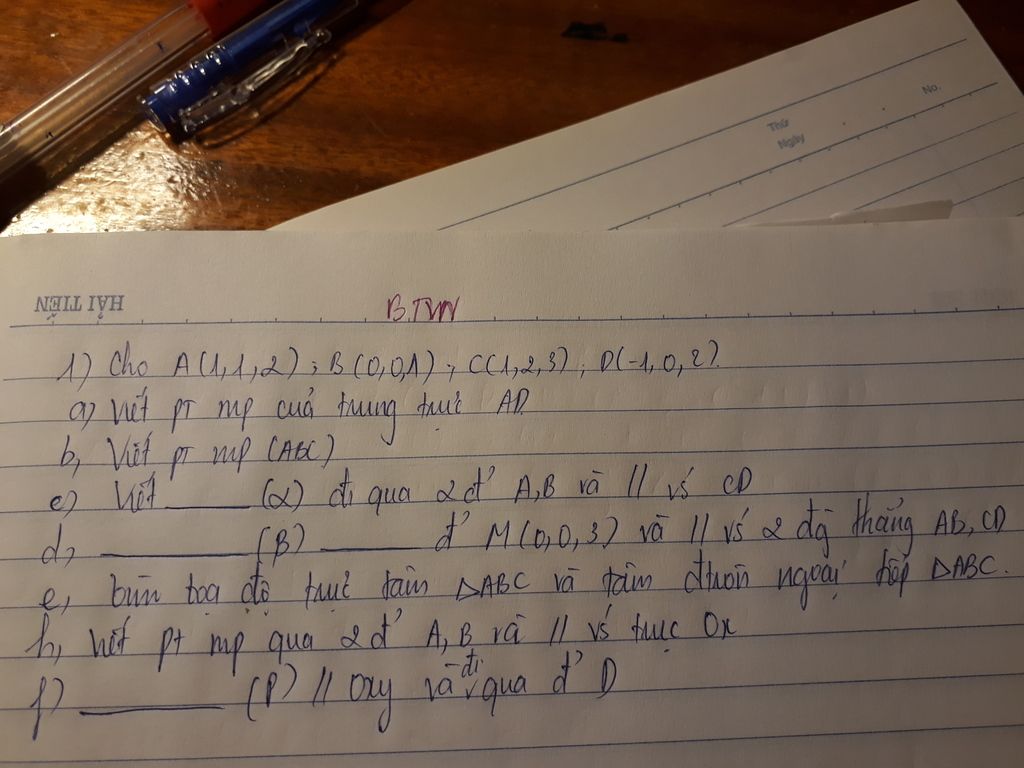 Thứ
Ngày
No.
HẢI TIẾN
B.TVN
1) Cho A(1,1,2) ; B(0,0,1) ; C(1,2,3) ; D(-1,0,2).
a) Viết pt mp cuả trung trực AD.
b, Viết pt mp (ABC)
c) Viết ______ (α) đi qua 2 đ' A,B và // vs' CD
d, ______ (β) ______ đ' M(0,0,3) và // vs' 2 đg thẳng AB, CD
e, toạ độ trực tâm △ABC và tâm ngoại tiếp △ABC.
h, viết pt mp qua 2 đ' A,B và // vs' trục Ox
f) ______ (P) // Oxy và đi qua đ' D